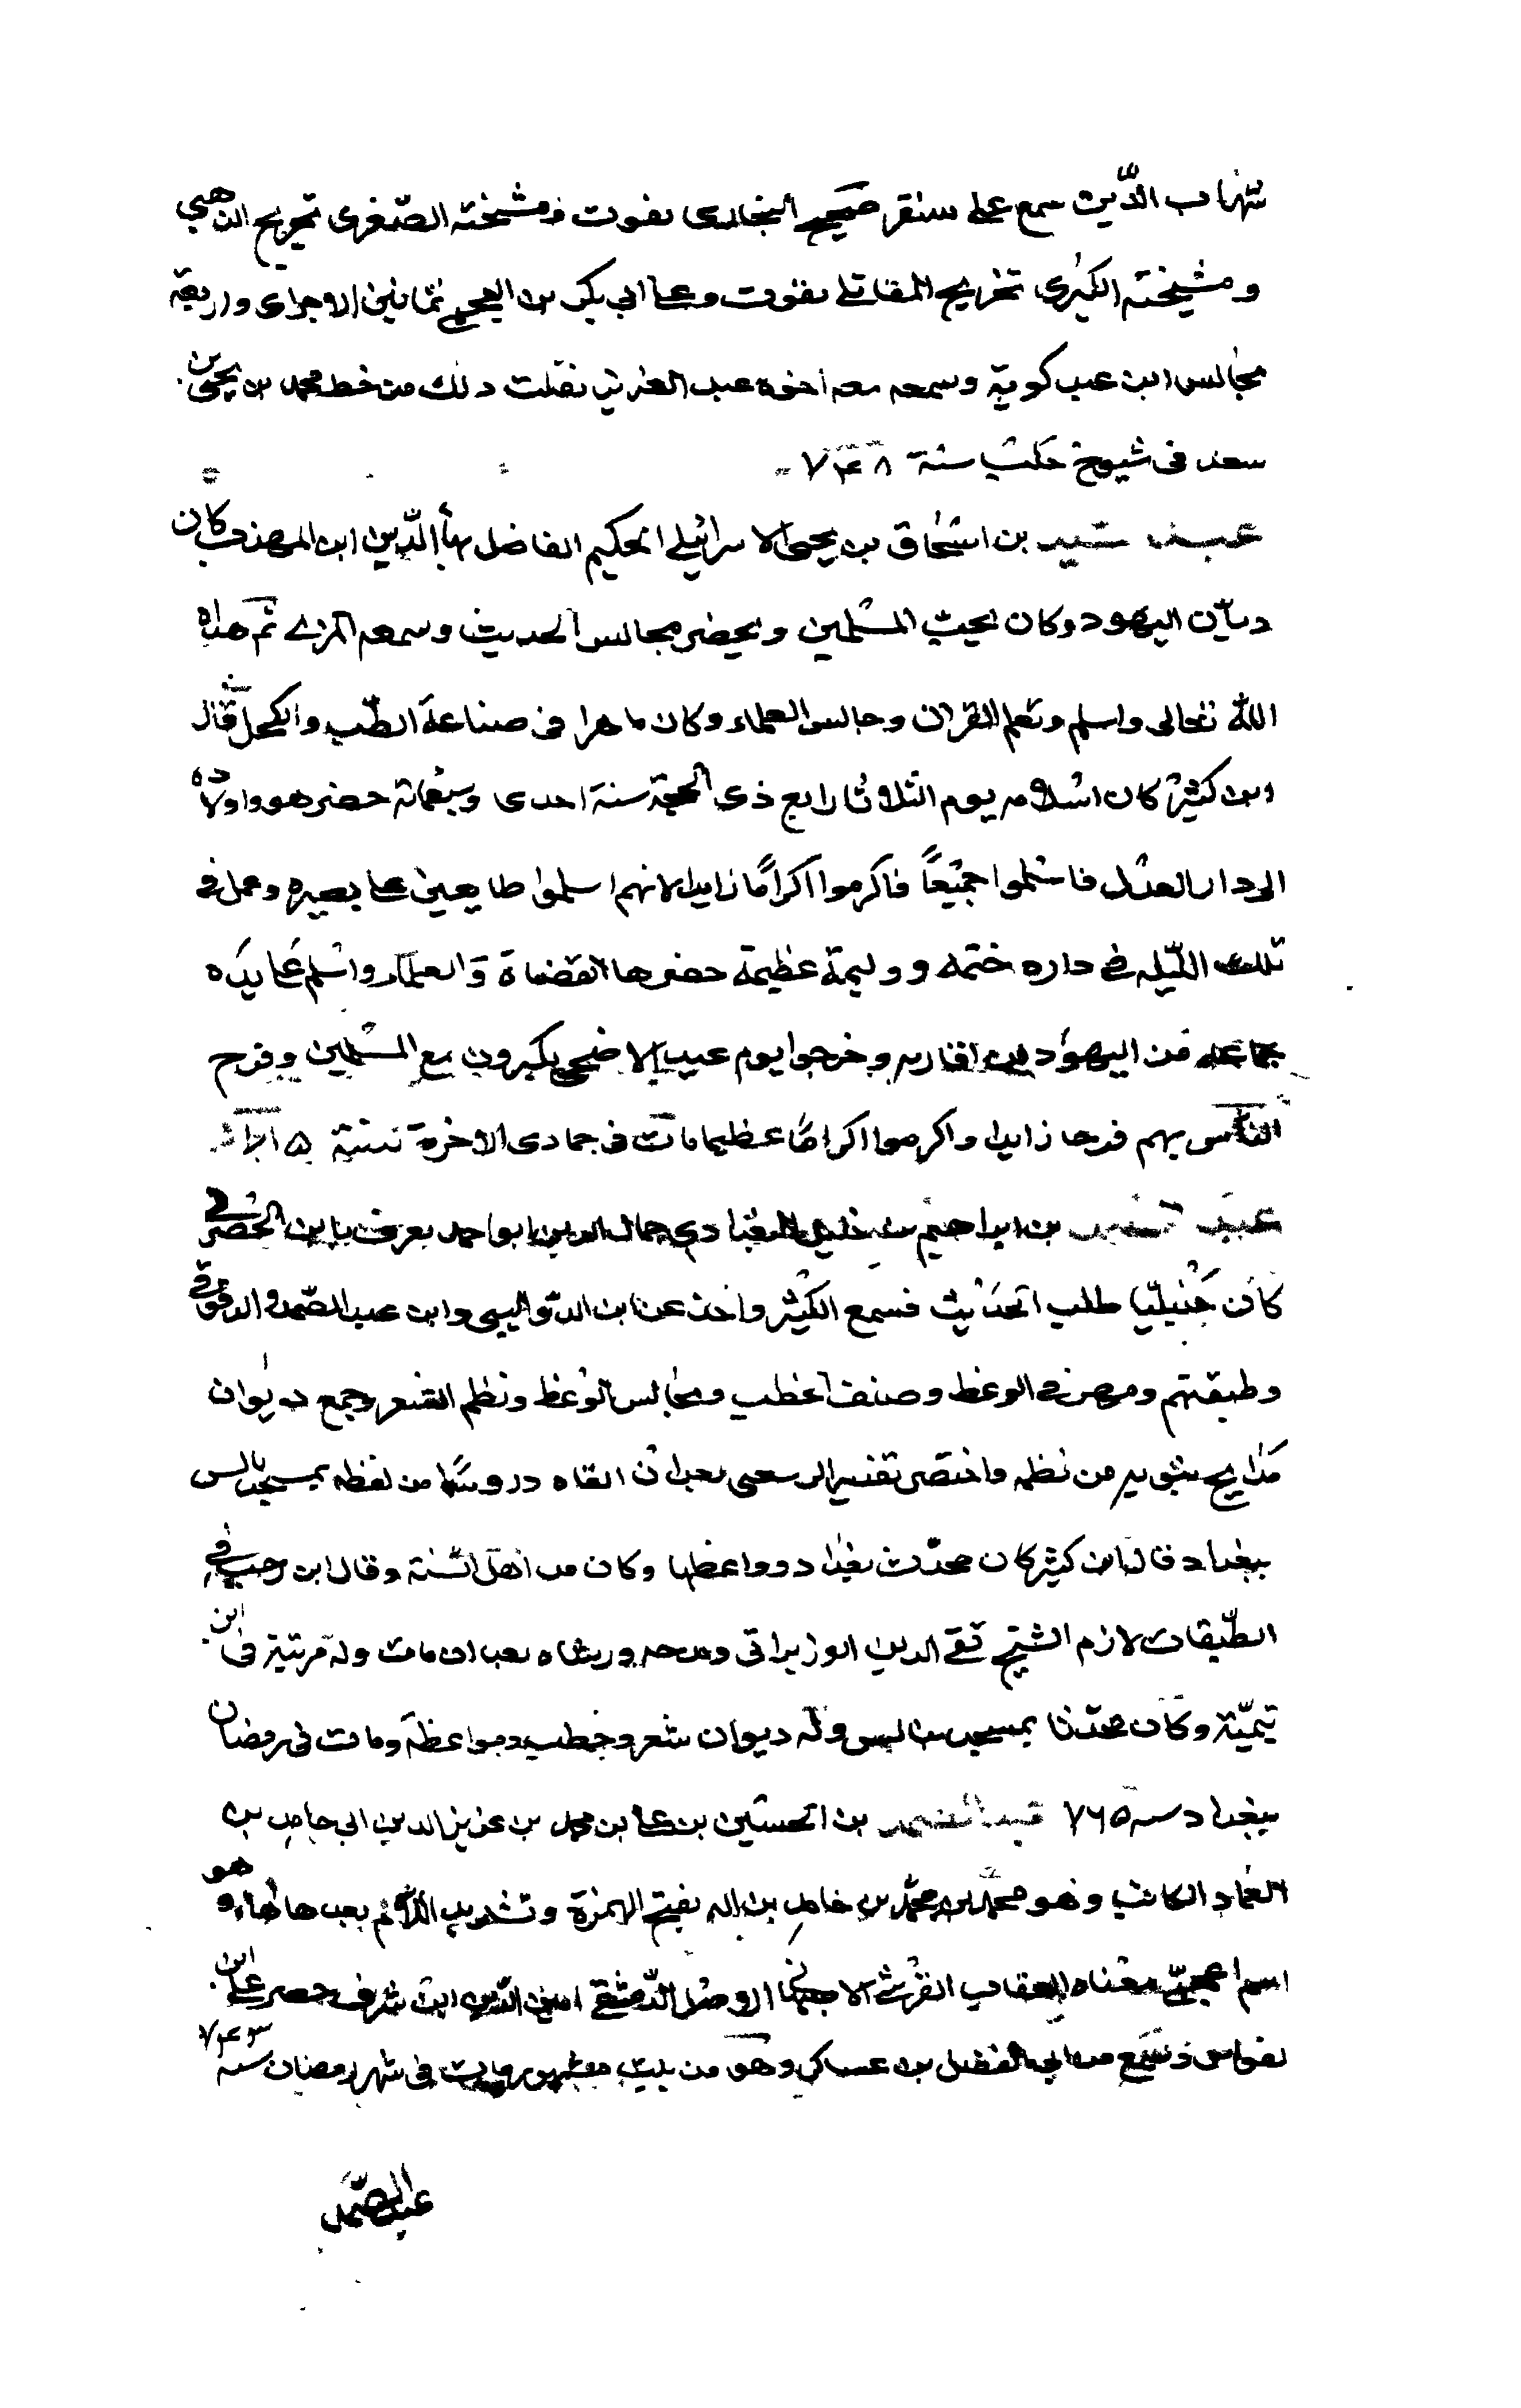 شهاب الدين سمع على سنقر صحيح البخارى بفوت ومشيخته الصغرى تخريج الذهبي
ومشيخته الكبرى تخريج المقاتلي بفوت وعلى ابي بكر بن العجمي ثمانين الاجرى واربعة
مجالس ابن عبدكويه وسمعه معه اخوه عبد العزيز نقلت ذلك من خط محمد بن يحيى بن
سعد فى شيوخ حلب سنة ٧٤٨
عبد السيد بن اسحاق بن يحيى الاسرائيلي الحكيم الفاضل بهاء الدين ابن المهذب كان
ديان اليهود وكان يحب المسلمين ويحضر مجالس الحديث وسمعه المزي ثم هداه
الله تعالى واسلم وتعلم القران وجالس العلماء وكان ماهرا فى صناعة الطب والكحل قال
ابن كثير كان اسلامه يوم الثلاثا رابع ذى الحجة سنة احدى وسبعمائة حضر هو واولاده
الى دار العدل فاسلموا جميعاً فاكرموا اكراماً زايدا لانهم اسلموا طايعين على بصيره وعمل في
تلك الليله في داره ختمه ووليمة عظيمة حضرها القضاة والعلماء واسلم على يده
جماعه من اليهود من اقاربه وخرجوا يوم عيد الاضحى يكبرون مع المسلمين وفرح
الناس بهم فرحا زايدا واكرموا اكراماً عظيما مات فى جمادى الاخرة سنة
عبد الصمد بن ابراهيم بن خليل البغدادي جمال الدين ابو احمد يعرف بابن الخضري
كان حنبليا طلب الحديث فسمع الكثير واخذ عن ابن الدواليبى وابن عبد الصمد والدقوقي
وطبقتهم ومهر في الوعظ وصنف الخطب ومجالس الوعظ ونظم الشعر وجمع ديوان
مدايح نبويه من نظمه واختصر تفسير الرسعنى بعد ان القاه دروسًا من لفظه بمسجد يانس
ببغداد قال ابن كثير كان محدث بغداد وواعظها وكان من اهل السنة وقال ابن رجب في
الطبقات لازم الشيخ تقي الدين الوزيرانى ومدحه ورثاه بعد ان مات وله مرثية فى ابن
تيمية وكان محدثا بمسجد يانس وله ديوان شعر وخطب ومواعظه ومات فى رمضان
ببغداد سنه ٧٦٥ عبد الصمد بن الحسين بن على بن محمد بن عزيز الدين ابي حامد بن
العماد الكاتب وهو محمد بن محمد بن حامد بن اله بفتح الهمزة وتشديد اللام بعدها هاء وهو
اسم اعجمي معناه العقاب القرشي الاصبهاني الاصل الدمشقي امين الدين ابن شرف حضر على ابن
القواس وسمع من ابي الفضل بن عساكر وهو من بيت مشهور مات فى شهر رمضان سنه ٧٤٣
عبد الصمد